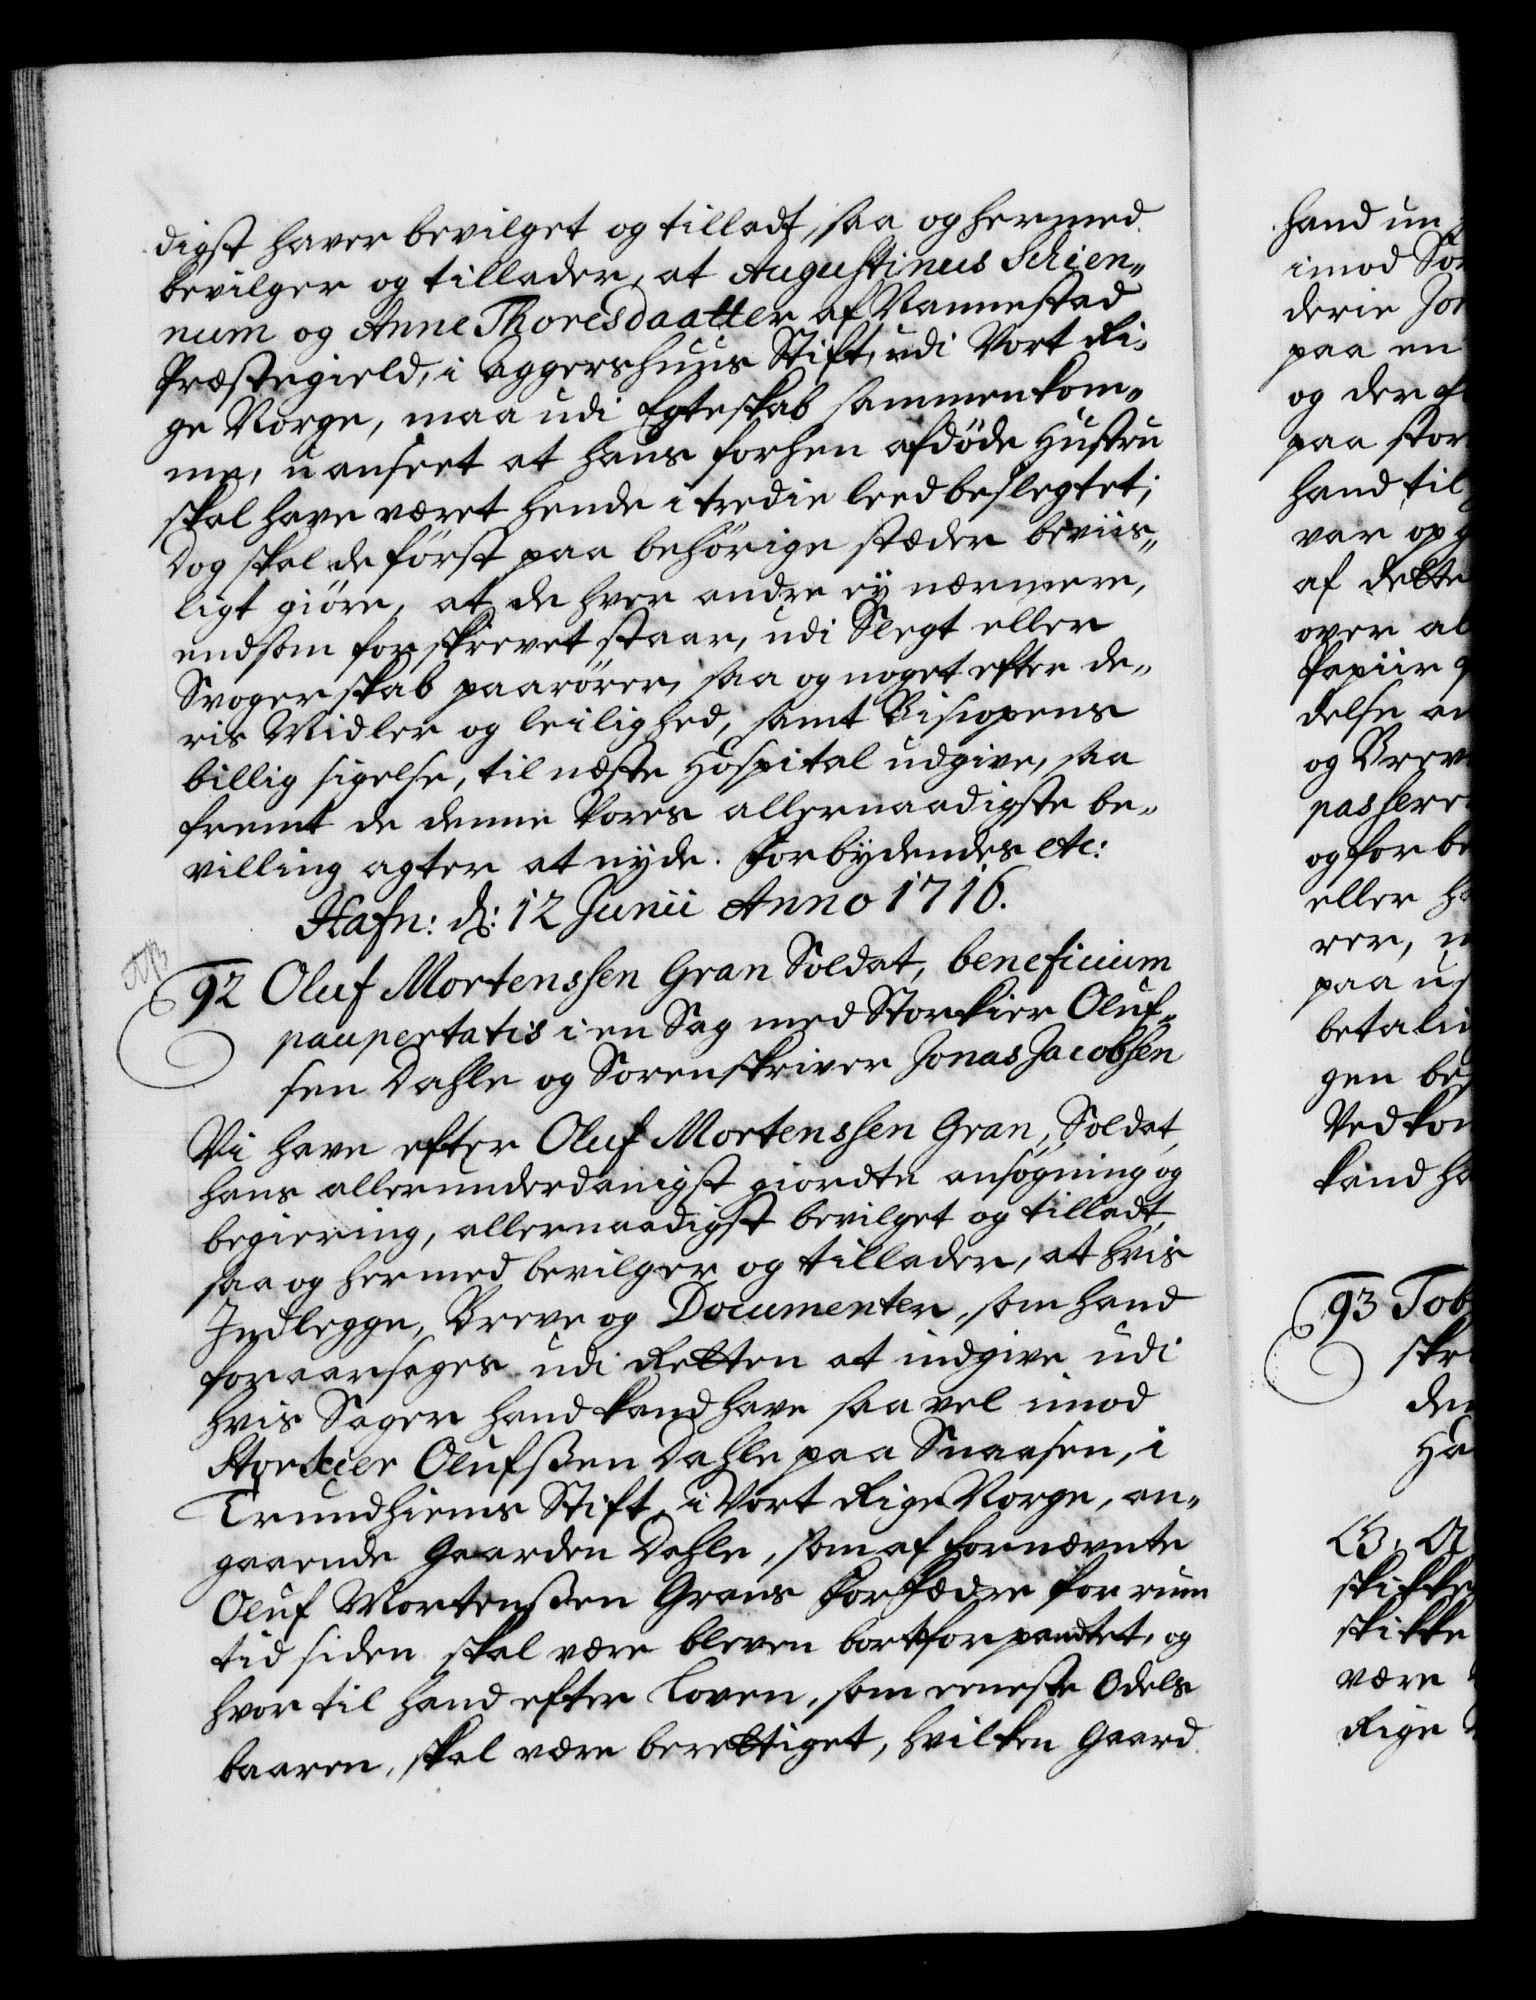 digst haver bevilget og tilladt, saa og hermed
bevilger og tillader, at Augustinus Schien„
num og Anne Thoresdaatter af Nannestad
Præstegield, i Aggershuus Stift, udi Vort Ri„
ge Norge, maa udi Egteskab sammenkom„
me, uanseet at hans forhen afdøde Hustru
skal have været hende i tredie leed beslegtet;
Dog skal de først paa behørige stæder beviis„
ligt giøre, at de hver andre ey nærmere,
end som forskrevet staar, udi Slegt eller
Svogerskab paarører, saa og noget efter de„
ris Midler og leilighed, samt Biscopens
billig sigelse, til næste Hospital udgive, saa
fremt de denne Vores allernaadigste be„
villing agter at nyde. Forbydendes etc:
Hafn: d: 12 Junii Anno 1716.
92 Oluf Mortenssen Gran Soldat, beneficium
paupertatis i en Sag med Storkier Oluf„
sen Dahle og Sorenskriver Jonas Jacobsen
Vi have efter Oluf Mortenssen Gran, Soldat,
hans allerunderdanigst giordte ansøgning og
begiering, allernaadigst bevilget og tilladt,
saa og hermed bevilger og tillader, at hvis
Indlegge, Breve og Documenter, som hand
foraarsages udi Retten at indgive udi
hvis Sager hand kand have saavel imod
Storkier Olufssen Dahle paa Snaasen, i
Trundhiems Stift, i Vort Rige Norge, an„
gaaende Gaarden Dahle, som af fornævnte
Oluf Mortenssen Grans Forfædre for rum
tid siden skal være bleven bortforpandtet, og
hvor til hand efter Loven, som eeneste Odels
baaren, skal være berettiget, hvilken Gaard
hand un
imod Sor
derie Jon
paa en
og der
paa stor
hand til
var op
af Rette
over al
Papiir
delse
og Breve
passere
og for be
eller
rer,
paa
betali
gen be
Vedkom
kand ha
93 Tob
skr
den
Ha
skikke
skikke
være
Rige